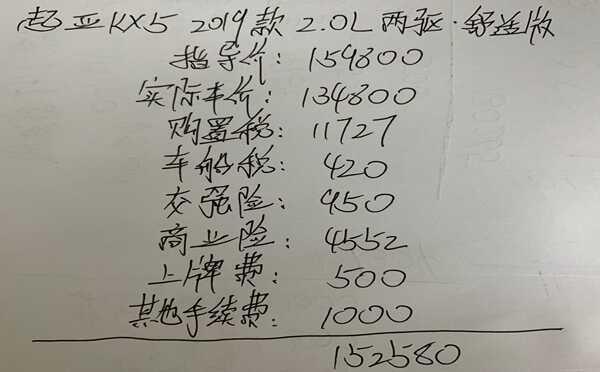 起亚KX5 2019款 2.0L 两驱·舒适版
指导价: 159800
实际车价: 134800
购置税: 11727
车船税: 420
交强险: 950
商业险: 4552
上牌费: 500
其他手续费: 1000
152580